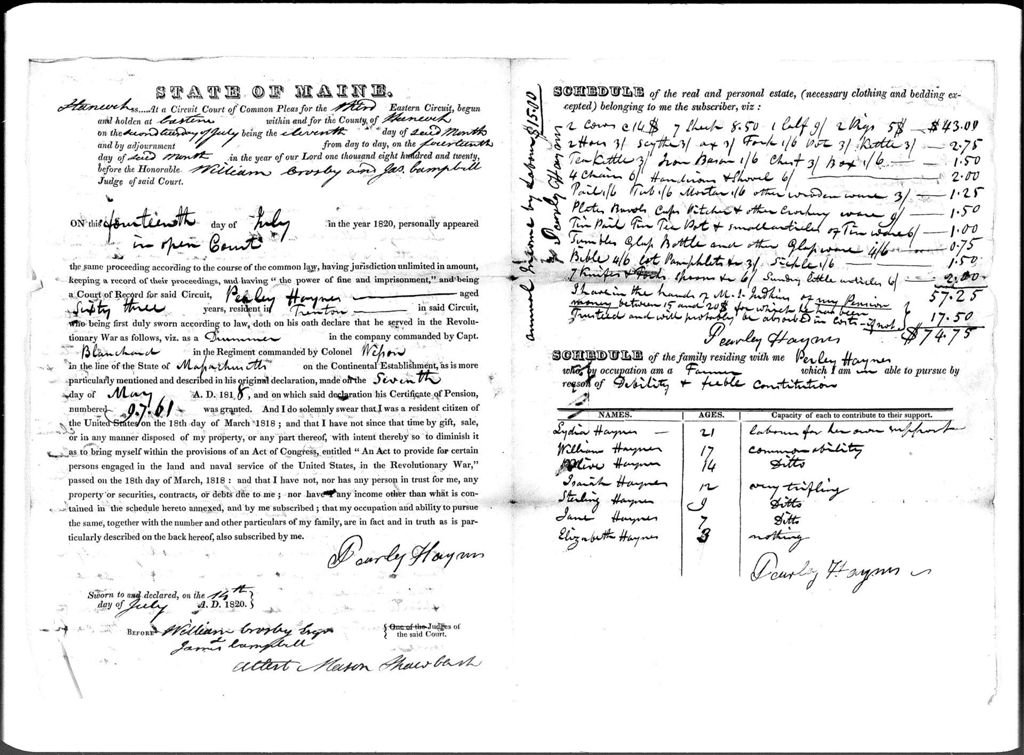 STATE OF MAINE.
Hancock ss.....At a Circuit Court of Common Pleas for the Third Eastern Circuit, begun
and holden at Castine within and for the County of Hancock
on the second tuesday of July being the eleventh day of said Month
and by adjournment from day to day, on the fourteenth
day of said Month in the year of our Lord one thousand eight hundred and twenty,
before the Honorable William Crosby and Jas. Campbell
Judge of said Court.
ON this fourteenth day of July in the year 1820, personally appeared
in open Court
the same proceeding according to the course of the common law, having jurisdiction unlimited in amount,
keeping a record of their proceedings, and having "the power of fine and imprisonment," and being
a Court of Record for said Circuit, Perley Haynes aged
Sixty three years, resident in Trenton in said Circuit,
who being first duly sworn according to law, doth on his oath declare that he served in the Revolu-
tionary War as follows, viz. as a Drummer in the company commanded by Capt.
Blanchard in the Regiment commanded by Colonel Wesson
in the line of the State of Massachusetts on the Continental Establishment, as is more
particularly mentioned and described in his original declaration, made on the Seventh
day of May A. D. 1818, and on which said declaration his Certificate of Pension,
numbered 9.761 was granted. And I do solemnly swear that I was a resident citizen of
the United States on the 18th day of March 1818; and that I have not since that time by gift, sale,
or in any manner disposed of my property, or any part thereof, with intent thereby so to diminish it
as to bring myself within the provisions of an Act of Congress, entitled "An Act to provide for certain
persons engaged in the land and naval service of the United States, in the Revolutionary War,"
passed on the 18th day of March, 1818: and that I have not, nor has any person in trust for me, any
property or securities, contracts, or debts due to me; nor have any income other than what is con-
tained in the schedule hereto annexed, and by me subscribed; that my occupation and ability to pursue
the same, together with the number and other particulars of my family, are in fact and in truth as is par-
ticularly described on the back hereof, also subscribed by me.
Pearley Haynes
Sworn to and declared, on the 14th
day of July A. D. 1820.
BEFORE William Crosby Esqr
James Campbell
One of the Judges of
the said Court.
Attest Mason Shaw Clerk
annual Income by labour $15.00
Pearley Haynes
SCHEDULE of the real and personal estate, (necessary clothing and bedding ex-
cepted) belonging to me the subscriber, viz:
2 Cows @ 14$ 7 Sheep 8.50 1 Calf 9/ 2 Pigs 5$ $43.00
2 Hoes 3/ Scythe 3/ ax 3/ Fork 1/6 Pot 3/ Kettle 3/ 2.75
Tea Kettle 3/ Iron Bason 1/6 Chest 3/ Box 1/6 1.50
4 Chairs 6/ Handirons & Shovel 6/ 2.00
Pail 1/6 Tub 1/6 Mortar 1/6 other wooden ware 3/ 1.25
Plates Bowls Cups Pitcher & other Crockery ware 9/ 1.50
Tin Pail Tin Tea Pot & small articles of Tin ware 6/ 1.00
Tumbler Glass Bottle and other Glass ware 4/6 0.75
Bible 4/6 lot Pamphlets 3/ Sickle 1/6 1.50
7 Knives & Forks spoons & Sundry little articles 6/ 2.00
57.25
I have in the hands of M. Judkins of my Pension
money between 15 and 20$ for which he has been
Trusteed and will probably be absorbed in Costs - if not 17.50
$74.75
Pearley Haynes
SCHEDULE of the family residing with me Perley Haynes
who, by occupation am a Farmer which I am un able to pursue by
reason of Debility & feeble Constitution
NAMES. AGES. Capacity of each to contribute to their support.
Lydia Haynes 21 labours for her own support
William Haynes 17 common ability
Olive Haynes 14 Ditto
Isaiah Haynes 12 very trifling
Sterling Haynes 9 Ditto
Jane Haynes 7 Ditto
Elizabeth Haynes 3 nothing
Pearley Haynes